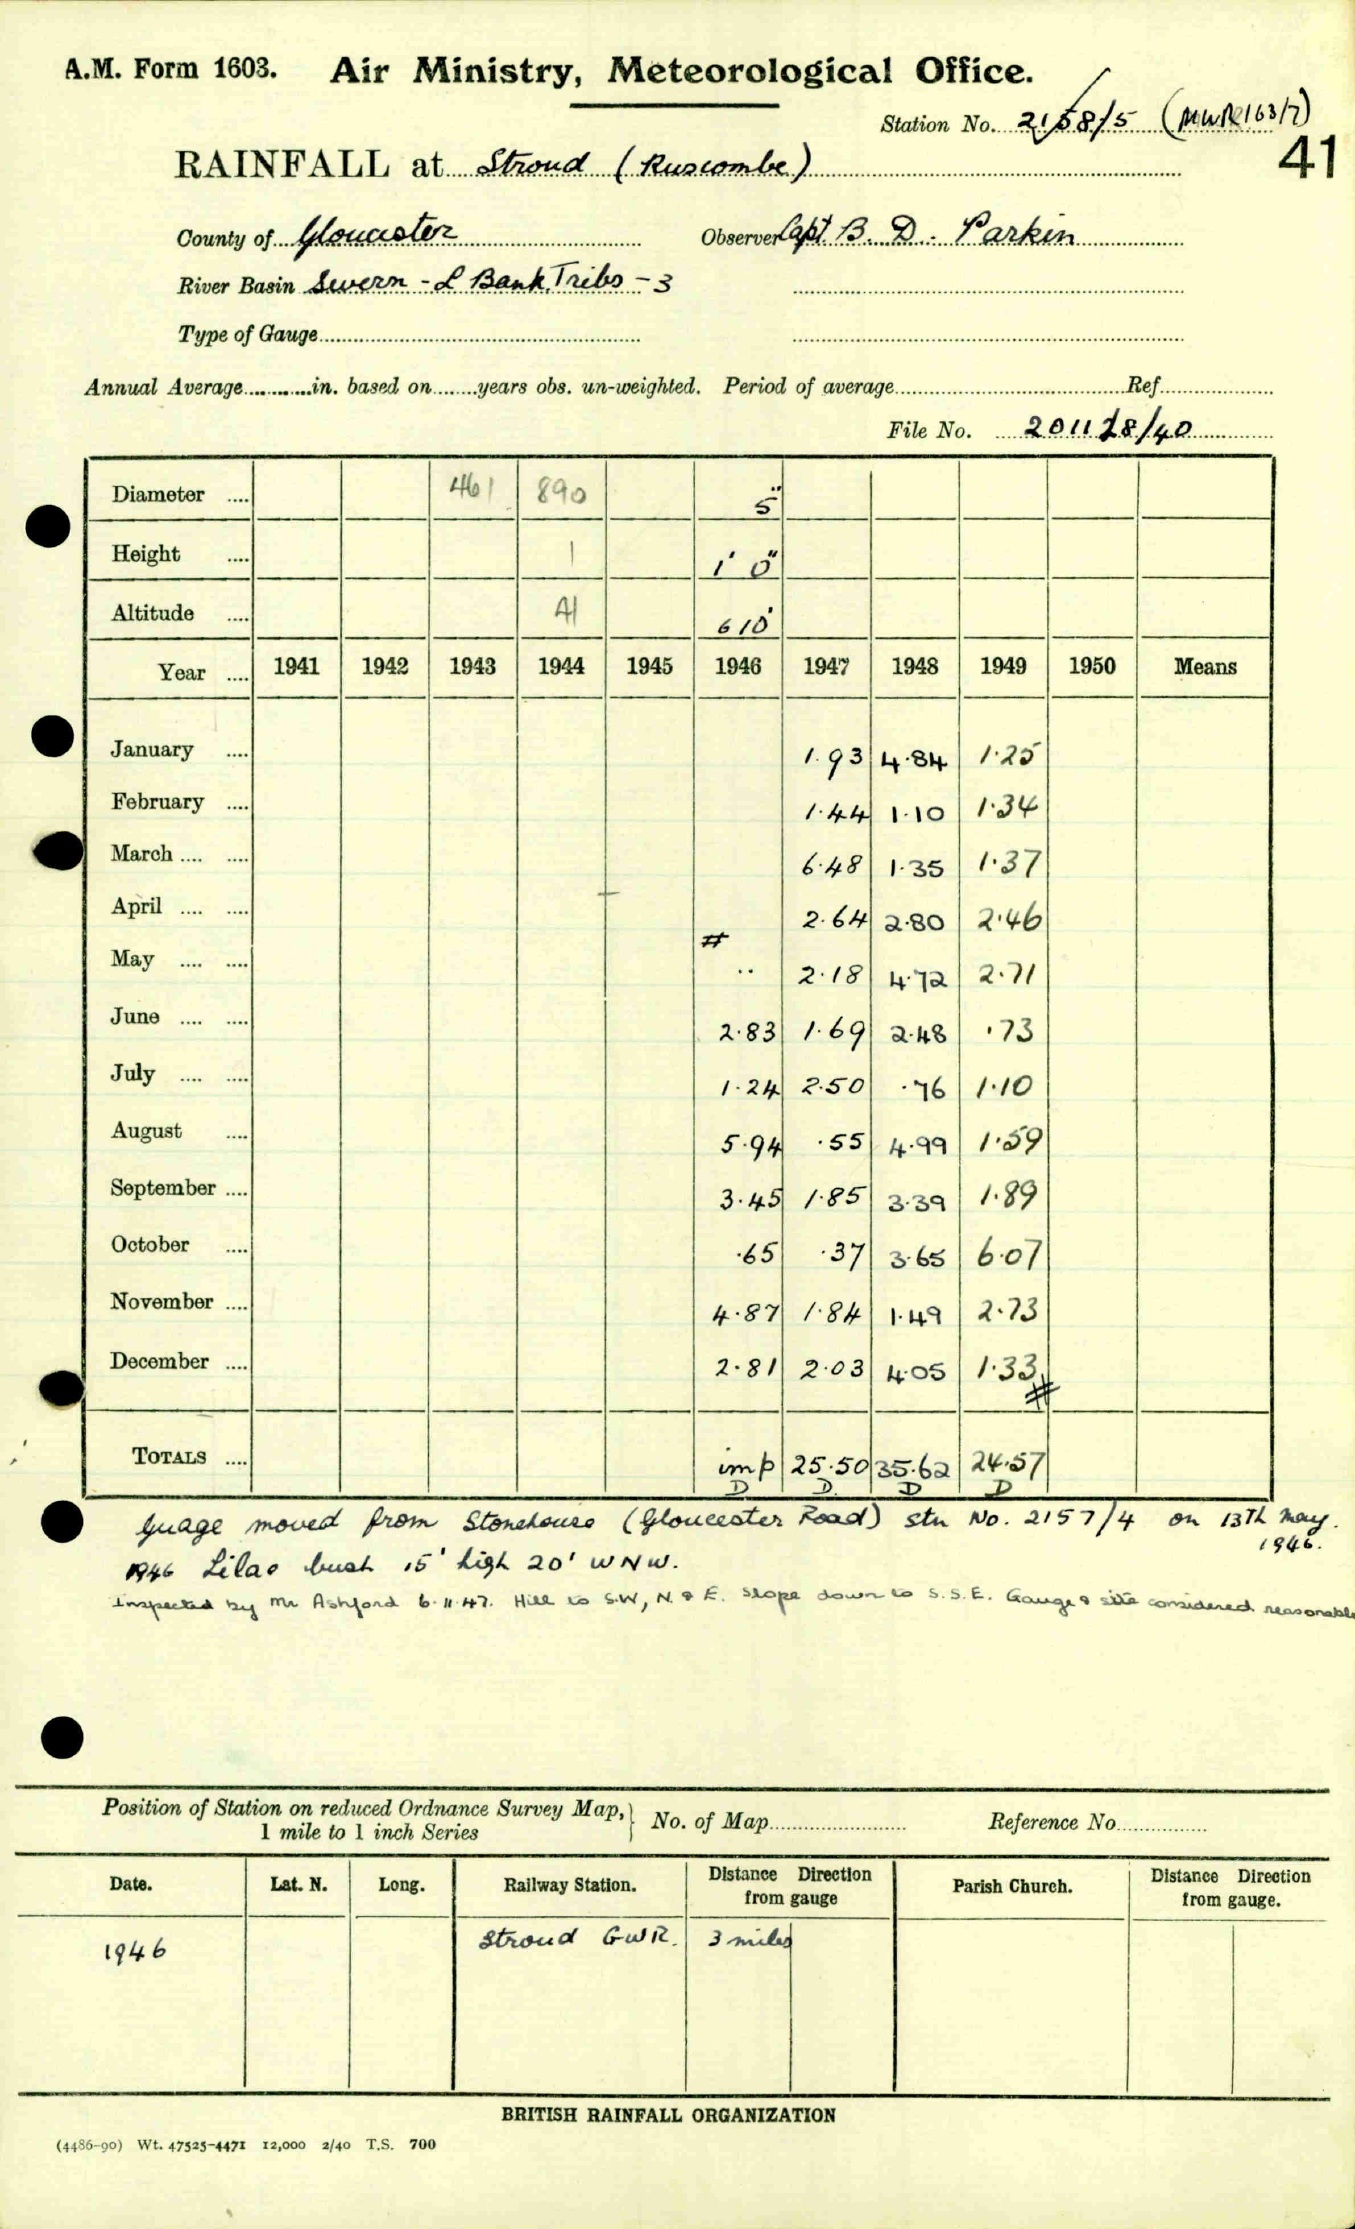 A.M. Form 1603. Air Ministry, Meteorological Office.
Station No. 2158/5 (MWR 163/7)
41
RAINFALL at Stroud (Ruscombe)
County of Gloucester Observer Capt B. D. Parkin
River Basin Severn - L Bank Tribs - 3
Type of Gauge
Annual Average in. based on years obs. un-weighted. Period of average Ref.
File No. 201178/40
Diameter .... 461 890 5"
Height .... 1 1' 0"
Altitude .... A1 610'
Year .... 1941 1942 1943 1944 1945 1946 1947 1948 1949 1950 Means
January .... 1.93 4.84 1.25
February .... 1.44 1.10 1.34
March .... .... 6.48 1.35 1.37
April .... .... 2.64 2.80 2.46
May .... .... # .. 2.18 4.72 2.71
June .... .... 2.83 1.69 2.48 .73
July .... .... 1.24 2.50 .76 1.10
August .... 5.94 .55 4.99 1.59
September .... 3.45 1.85 3.39 1.89
October .... .65 .37 3.65 6.07
November .... 4.87 1.84 1.49 2.73
December .... 2.81 2.03 4.05 1.33 #
TOTALS .... imp 25.50 35.62 24.57
D D. D D
Guage moved from Stonehouse (Gloucester Road) stn No. 2157/4 on 13th May.
1946.
1946 Lilac bush 15' high 20' WNW.
Inspected by Mr Ashford 6.11.47. Hill to SW, N & E. Slope down to S.S.E. Gauge & site considered reasonable
Position of Station on reduced Ordnance Survey Map, No. of Map Reference No.
1 mile to 1 inch Series
Date. Lat. N. Long. Railway Station. Distance Direction from gauge Parish Church. Distance Direction from gauge.
1946 Stroud GWR. 3 miles
BRITISH RAINFALL ORGANIZATION
(4486-90) Wt. 47525-4471 12,000 2/40 T.S. 700